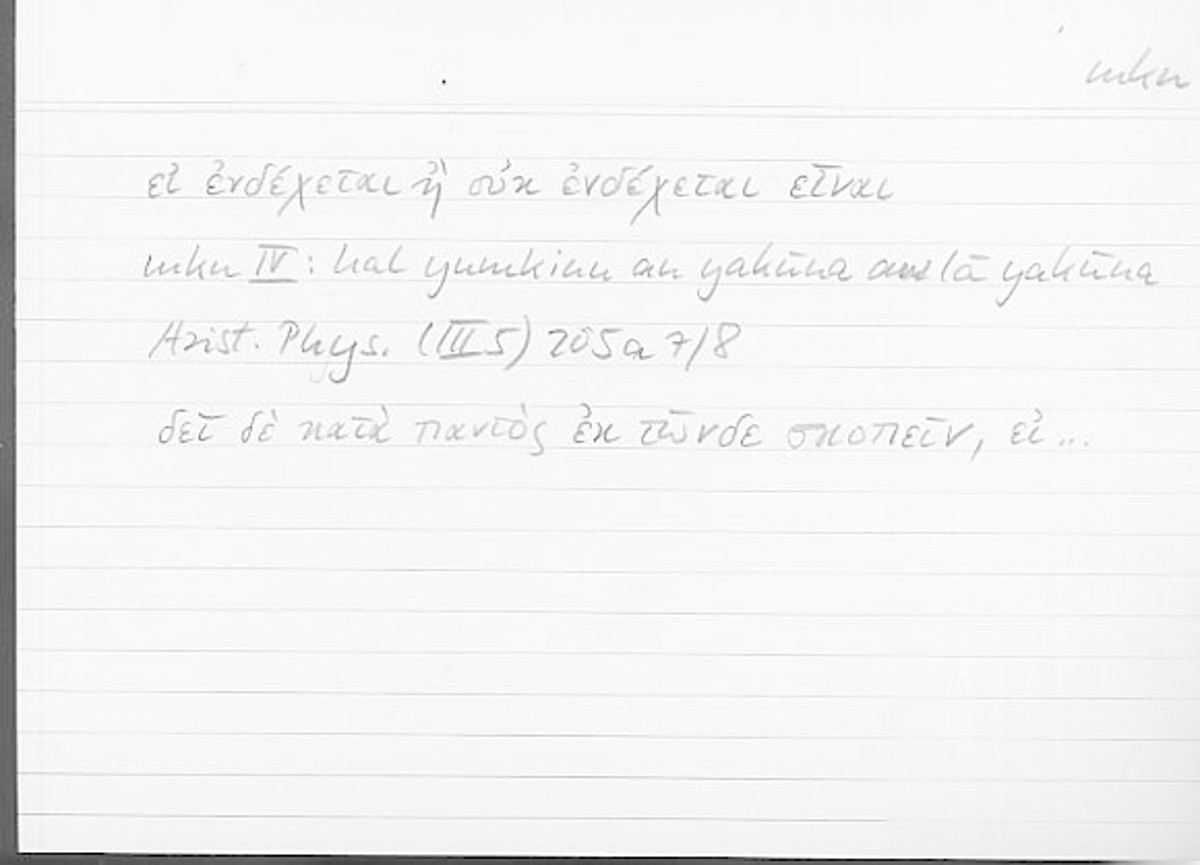 mkn
εἰ ἐνδέχεται ἢ οὐκ ἐνδέχεται εἶναι
mkn IV: hal yumkinu an yakūna au lā yakūna
Arist. Phys. (III 5) 205 a 7/8
δεῖ δὲ κατὰ παντὸς ἐκ τῶνδε σκοπεῖν, εἰ ...